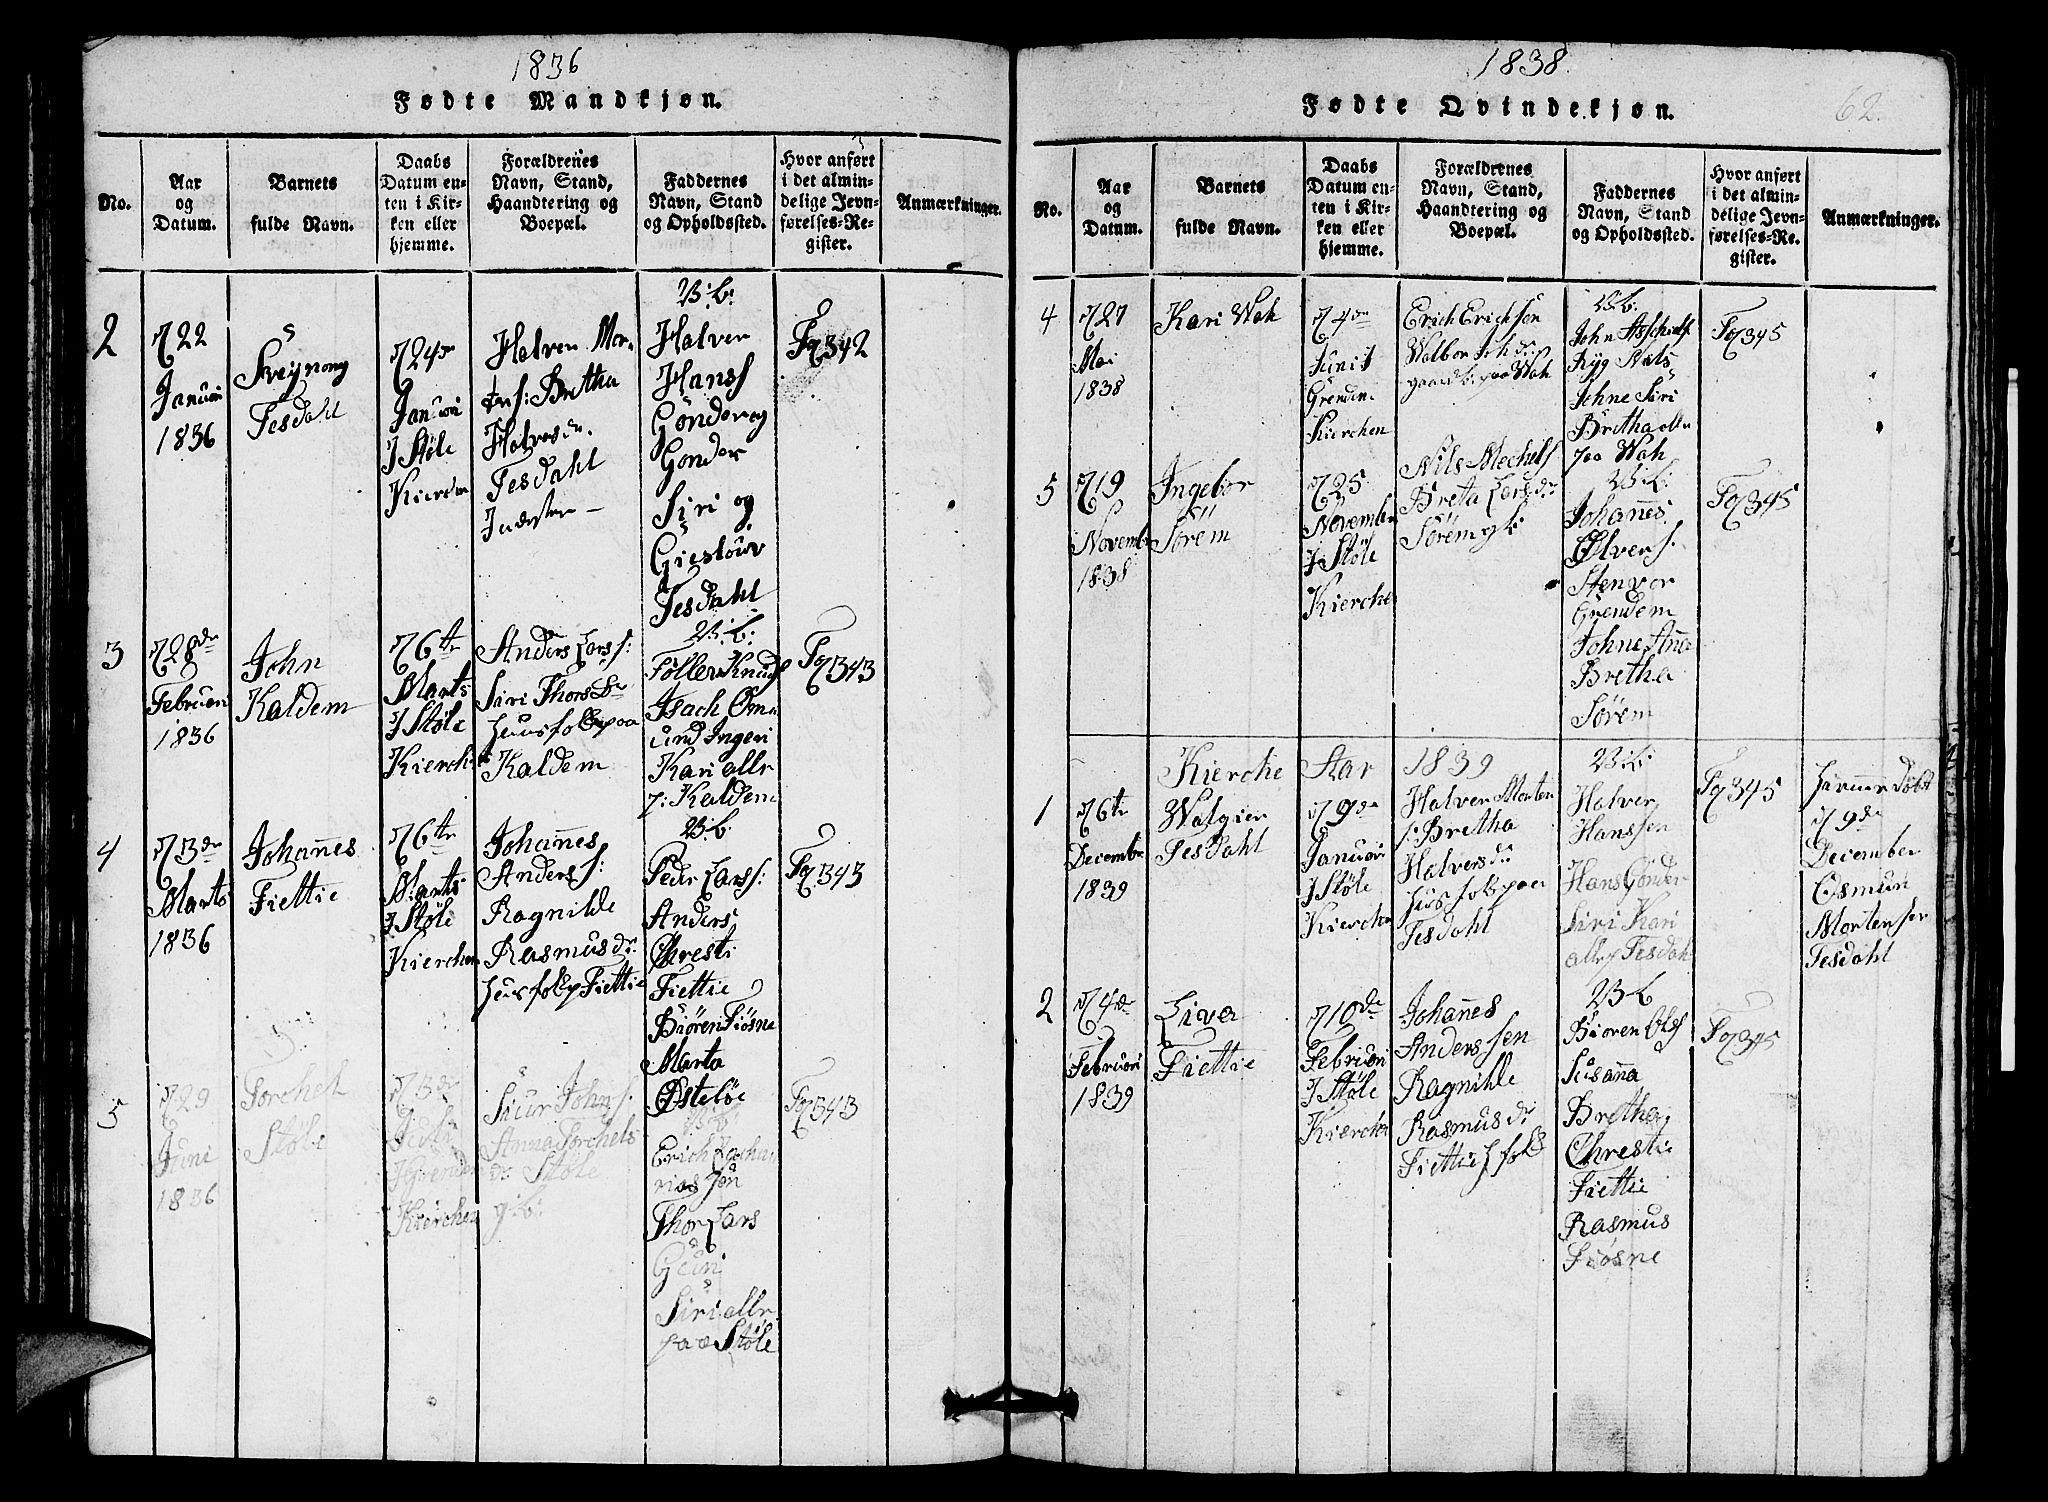 1836
Fødte Mandkjøn.
No.
Aar
og
Datum.
Barnets
fulde Navn.
Daabs
Datum en-
ten i Kir-
ken eller
hjemme.
Forældrenes
Navn, Stand,
Haandtering og
Boepæl.
Faddernes
Navn, Stand
og Opholdssted.
Hvor anført
i det almin-
delige Jevn-
førelses-Re-
gister.
Anmærkninger.
2
22
Januari
1836
Tesdahl
24de
Januari
J Støle
Kierchen
Halver Mor-
Bretha
Halversdr.
Tesdahl
V: b:
Halver
Hanss
Gønder og
Gonder
Siri og
Giestouv
Tesdahl
342
3
28de
Februari
1836
John
Kaldem
6te
Marts
J Støle
Kierch
Anders Larss:
Siri Thorsdr
huusfolk paa
Kaldem
V: b:
Føller Knuds
Isach Øm
und Ingeri
Kari allr
p: Kaldem
343
4
3de
Marts
1836
Johannes
Fiettie
6te
Marts
J Støle
Kierchen
Johannes
Anders:
Ragnilde
Rasmusdr:
husfolk p Fiettie
V: b:
Peder Larss:
Anders
Chresti
Fiettie
Biøren Fiøsne
Marta
Østeløe
343
5
29
Juni
1836
Torchel
Støle
3de
Juli
Grenden
Kierchen
Siur Johns.
Anna Torchels
dr Støle
g: b:
V: b:
Erich Zacha
rias sen
Thor Lars
Guri
Siri allr
paa Støle
343
1838
Fødte Qvindekjøn.
62.
No.
Aar
og
Datum.
Barnets
fulde Navn.
Daabs
Datum en-
ten i Kir-
ken eller
hjemme.
Forældrenes
Navn, Stand,
Haandtering og
Boepæl.
Faddernes
Navn, Stand
og Opholdssted.
Hvor anført
i det almin-
delige Jevn-
førelses-Re-
gister.
Anmærkninger.
4
27
Mai
1838
Kari Wah
4de
Juni i
Grendem
Kierchen
Erich Erichsøn
Walbor Johdr
gaardb: paa Wah
V: b:
John
Johne Siri
Bretha alle
paa Wah
345
5
19
Novembr
1838
Ingebor
Sørem
25
Novembr
J Støle
Kierche
Nils Mechels
Breta Larsdr
Sørem g b:
V: b:
Johannes
Ølvers.
Stenvor
Grendem
Johne Anna
Bretha
Sørem
345
Kierche Aar 1839
1
6te
Decembr
1839
Walgier
Tesdahl
9de
Januari
J Støle
Kierche
Halver Morten
s: Bretha
Halversdr
husfolk paa
Tesdahl
V: b:
Halver
Hanssen
Hans Gønder
Siri Kari
alle p Tesdah
345
9de
December
Osmun
Mortenser
Tesdahl
2
4de
Februari
1839
Liva
Fiettie
10de
Februari
J Støle
Kierche
Johannes
Anderssen
Ragnilde
Rasmusdr
Fiettie h folk
V b
Bioren Ols
Susanna
Bretha
Chresti
Fiettie
Rasmus
Fiøsne
345